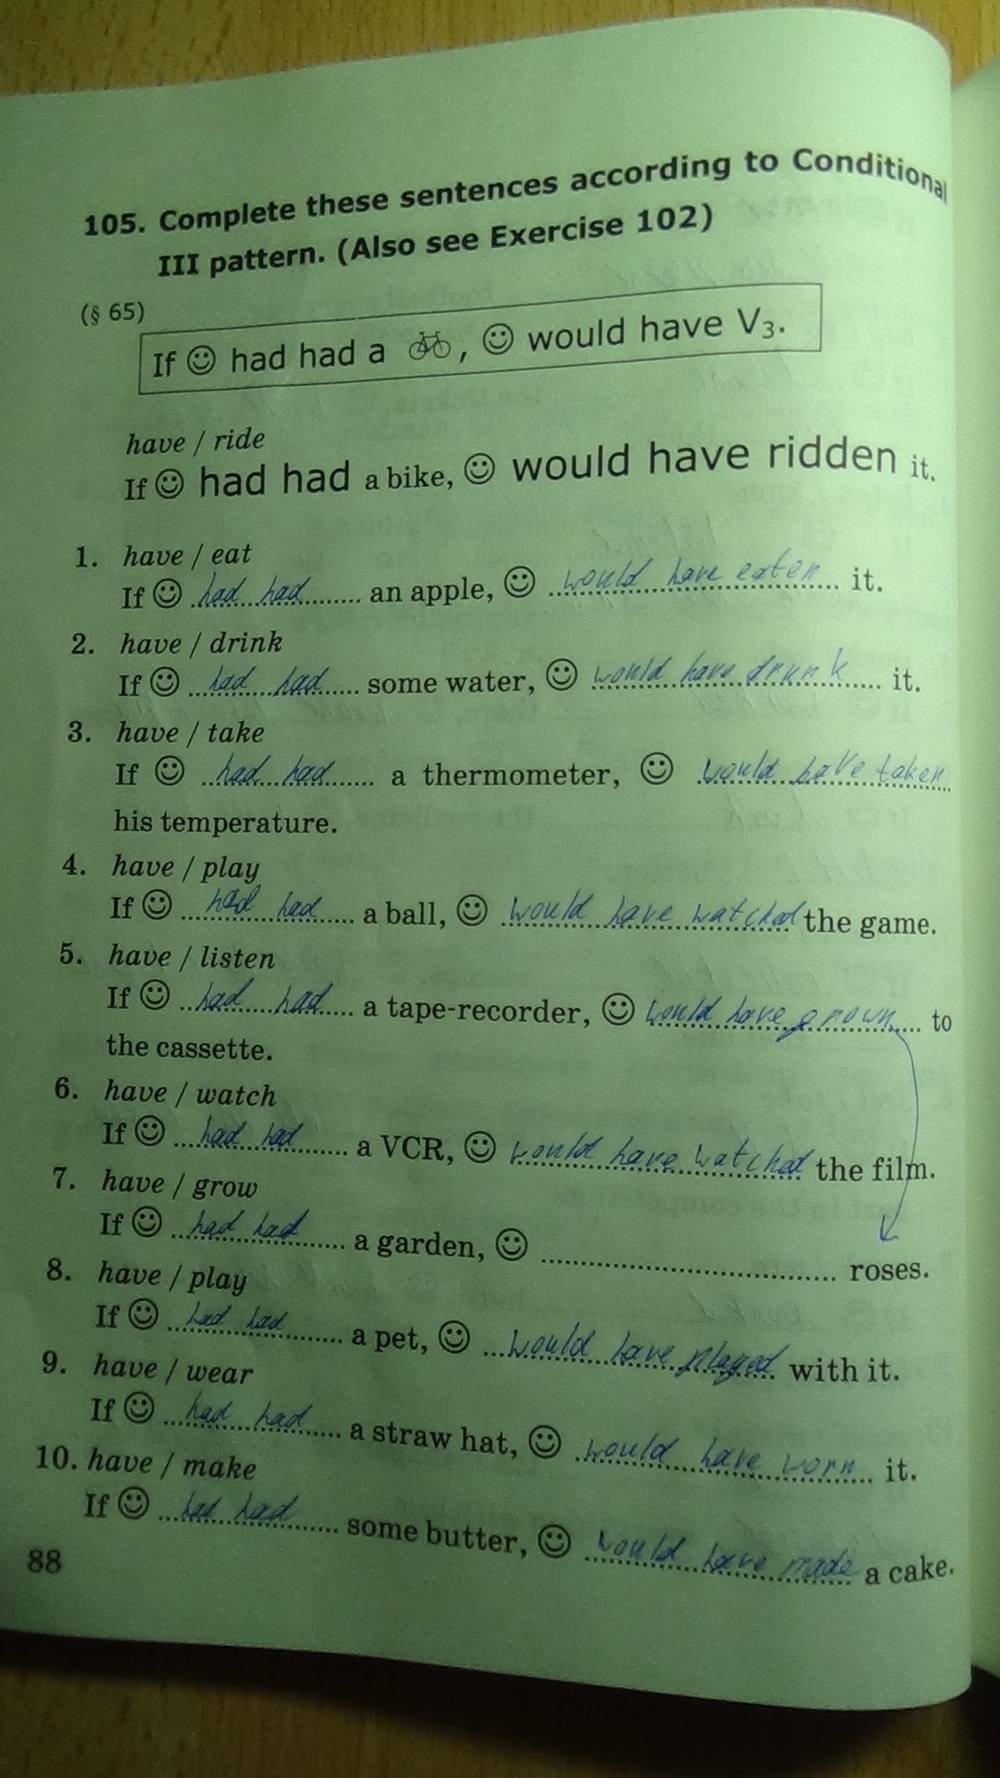 105. Complete these sentences according to Conditional
III pattern. (Also see Exercise 102)
(§ 65)
If ☺ had had a 🚲, ☺ would have V₃.
have / ride
If ☺ had had a bike, ☺ would have ridden it.
1. have / eat
If ☺ had had an apple, ☺ would have eaten it.
2. have / drink
If ☺ had had some water, ☺ would have drunk it.
3. have / take
If ☺ had had a thermometer, ☺ would have taken
his temperature.
4. have / play
If ☺ had had a ball, ☺ would have watched the game.
5. have / listen
If ☺ had had a tape-recorder, ☺ would have grown to
the cassette.
6. have / watch
If ☺ had had a VCR, ☺ would have watched the film.
7. have / grow
If ☺ had had a garden, ☺ roses.
8. have / play
If ☺ had had a pet, ☺ would have played with it.
9. have / wear
If ☺ had had a straw hat, ☺ would have worn it.
10. have / make
If ☺ had had some butter, ☺ would have made a cake.
88